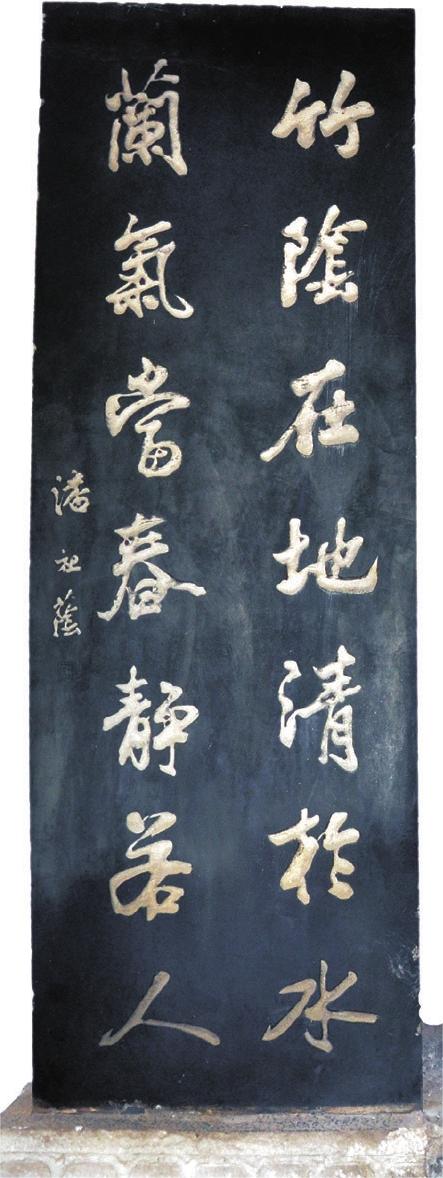 竹陰在地清於水
蘭氣當春靜若人
潘祖蔭